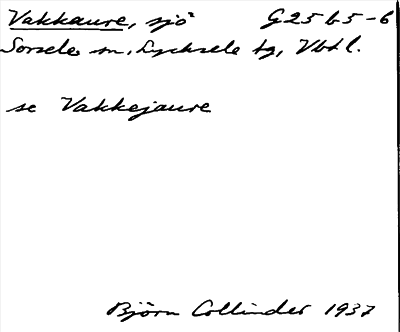 Vakkaure, sjö G25 b5-6
Sorsele sn, Lycksele tg, Vbtl.
se Vakkejaure
Björn Collinder 1937